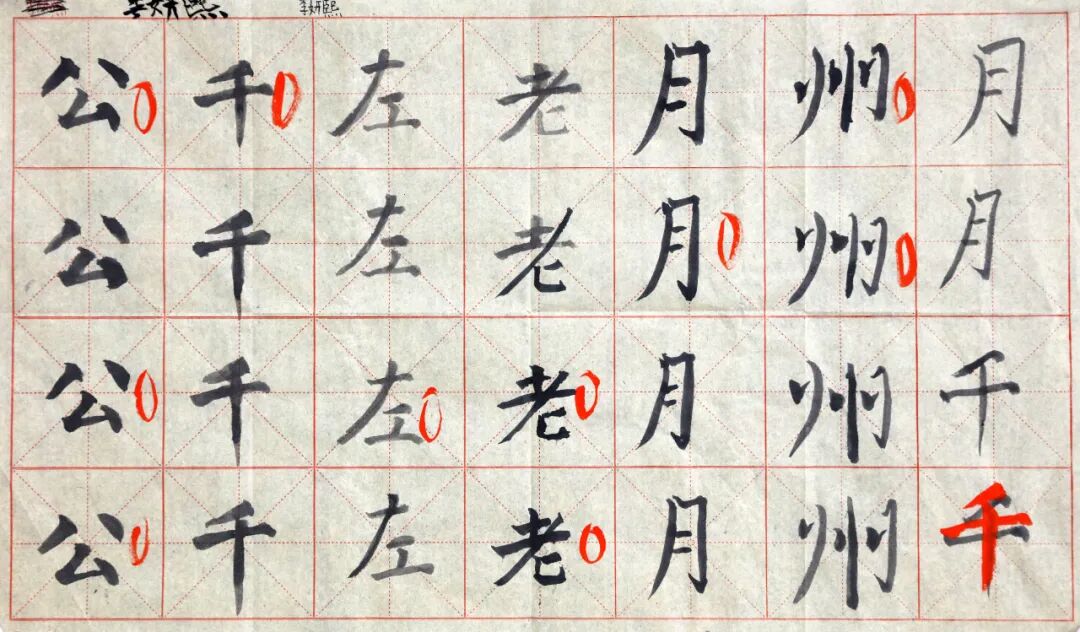 公千左老月州月
公千左老月州月
公千左老月州千
公千左老月州千